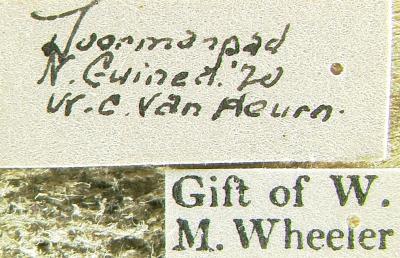 Doormanpad
N. Guinea.'20
W.C. van Heurn.
Gift of W.
M. Wheeler